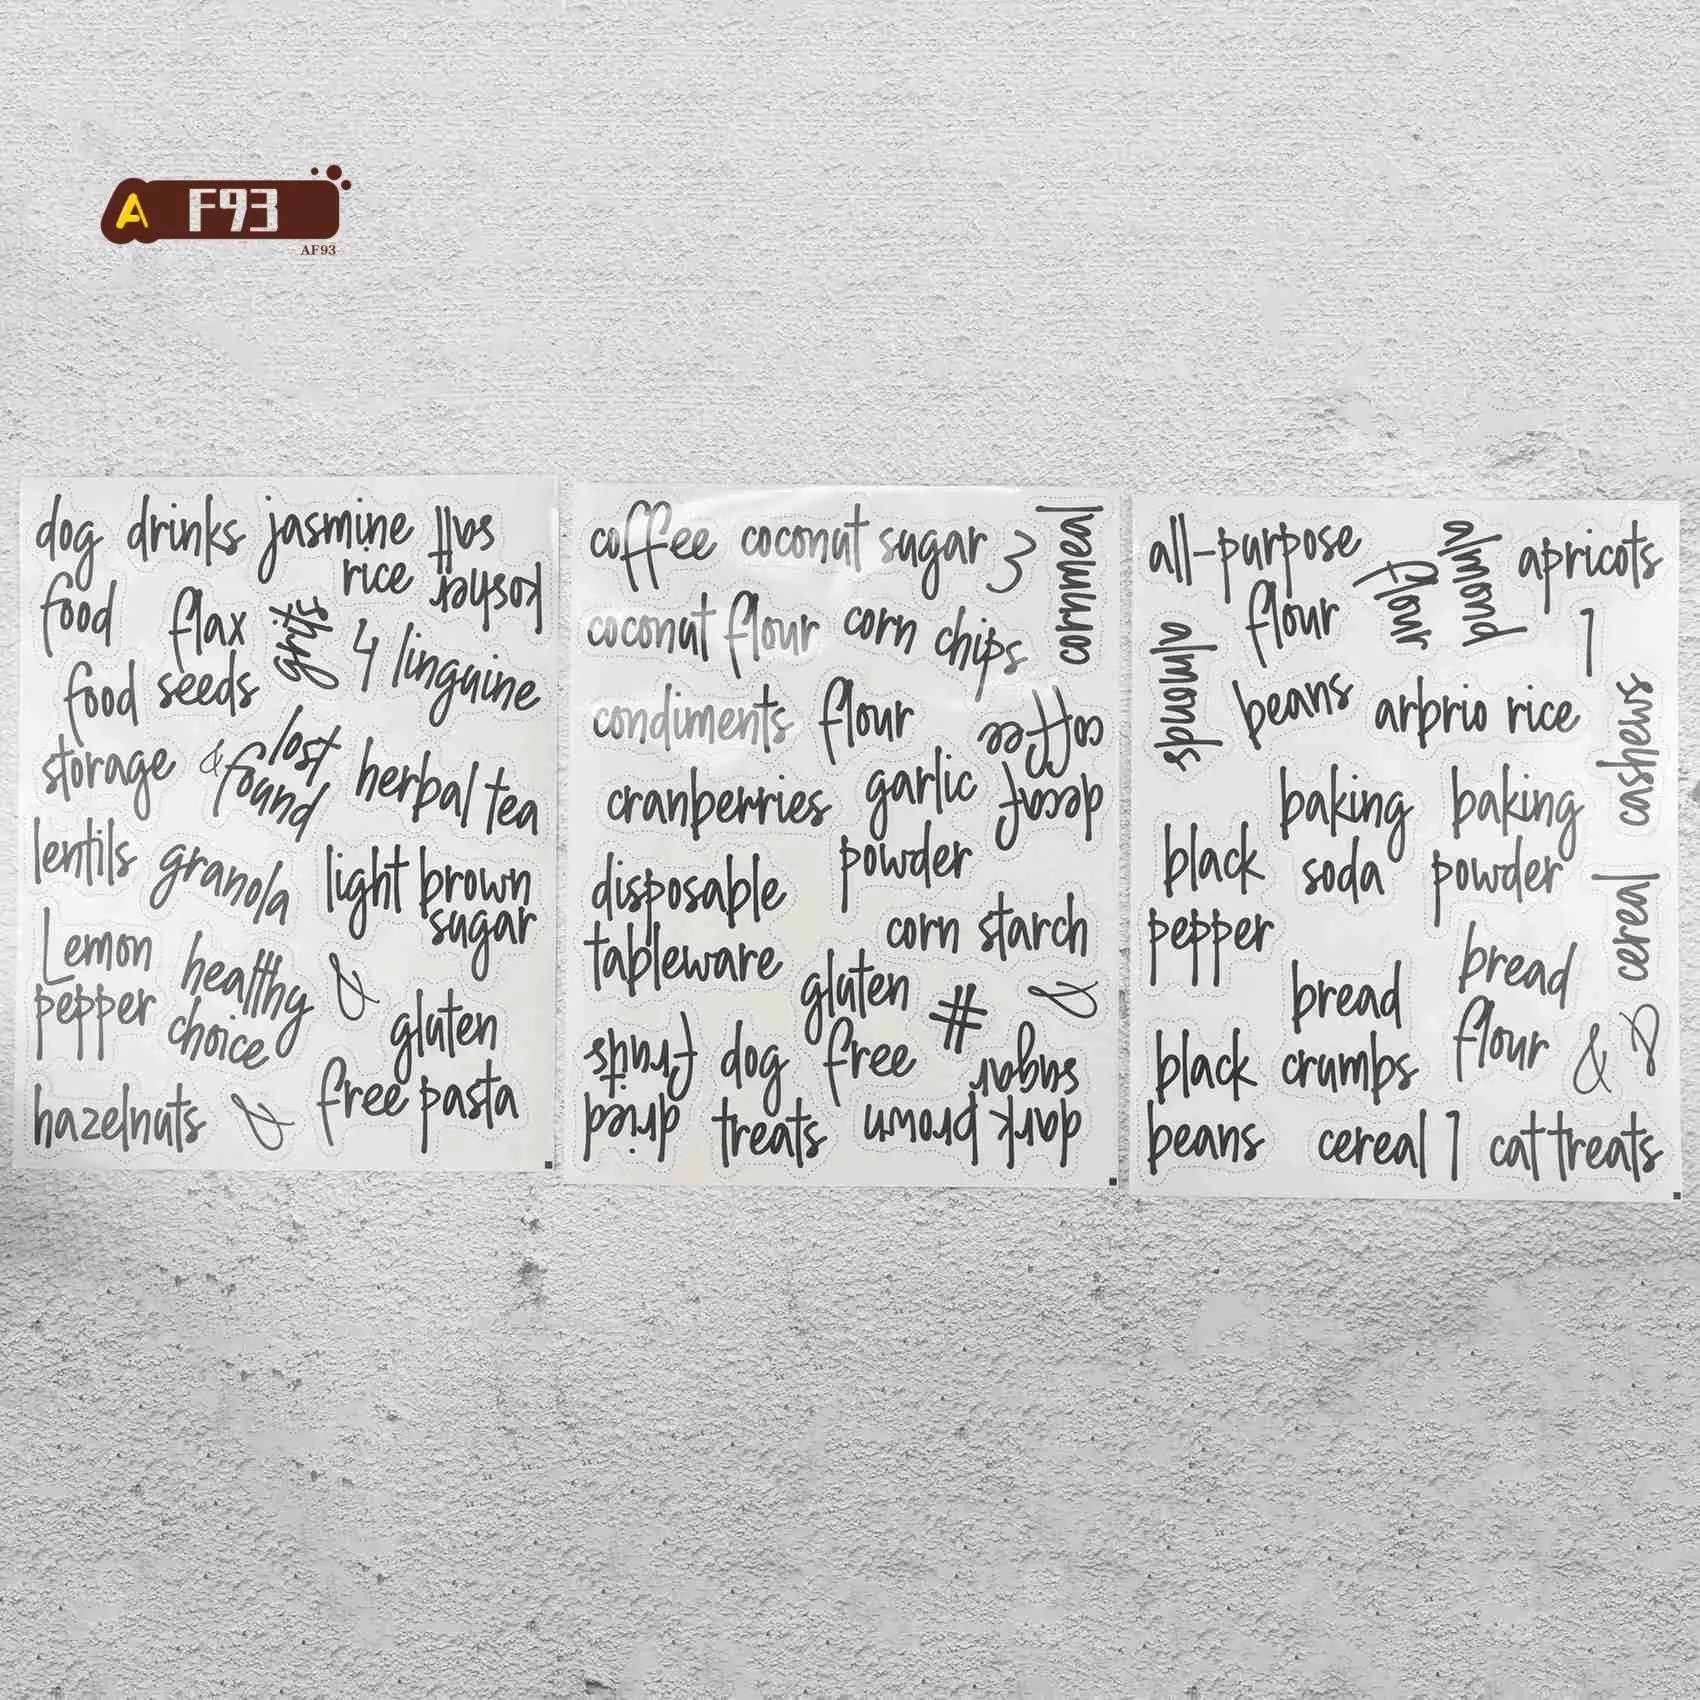 A F93
AF93
dog food
drinks
jasmine
rice
kosher
salt
flax
seeds
grits
4
linguine
food
storage
lost
& found
herbal tea
lentils
granola
light brown
sugar
Lemon
pepper
healthy
choice
&
gluten
free pasta
hazelnuts
&
coffee
coconut sugar
3
cornmeal
coconut flour
corn chips
condiments
flour
decaf
coffee
cranberries
garlic
powder
disposable
tableware
corn starch
gluten
free
#
&
dried
fruits
dog
treats
dark brown
sugar
all-purpose
flour
almond
flour
apricots
1
almonds
beans
arbrio rice
cashews
black
pepper
baking
soda
baking
powder
cereal
bread
crumbs
bread
flour
black
beans
&
&
cereal
1
cat treats